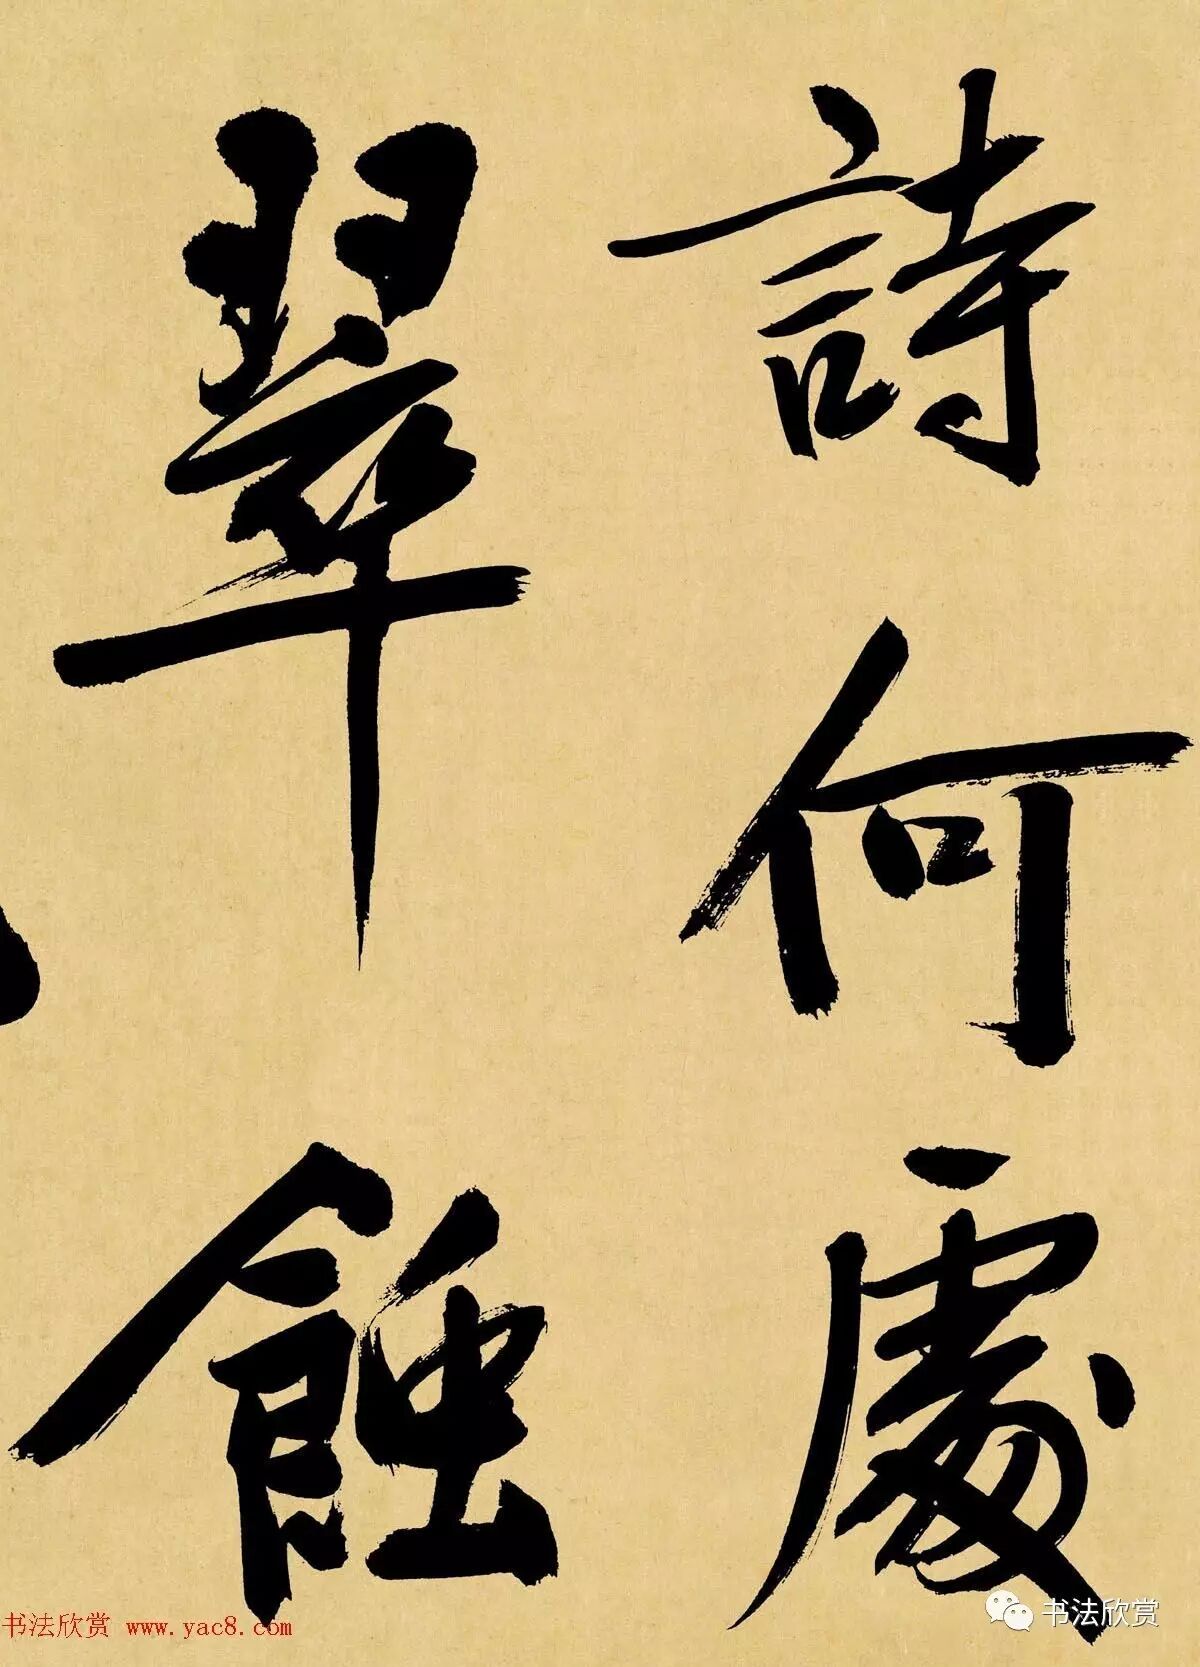 詩何處
翠蝕
书法欣赏 www.yac8.com
书法欣赏